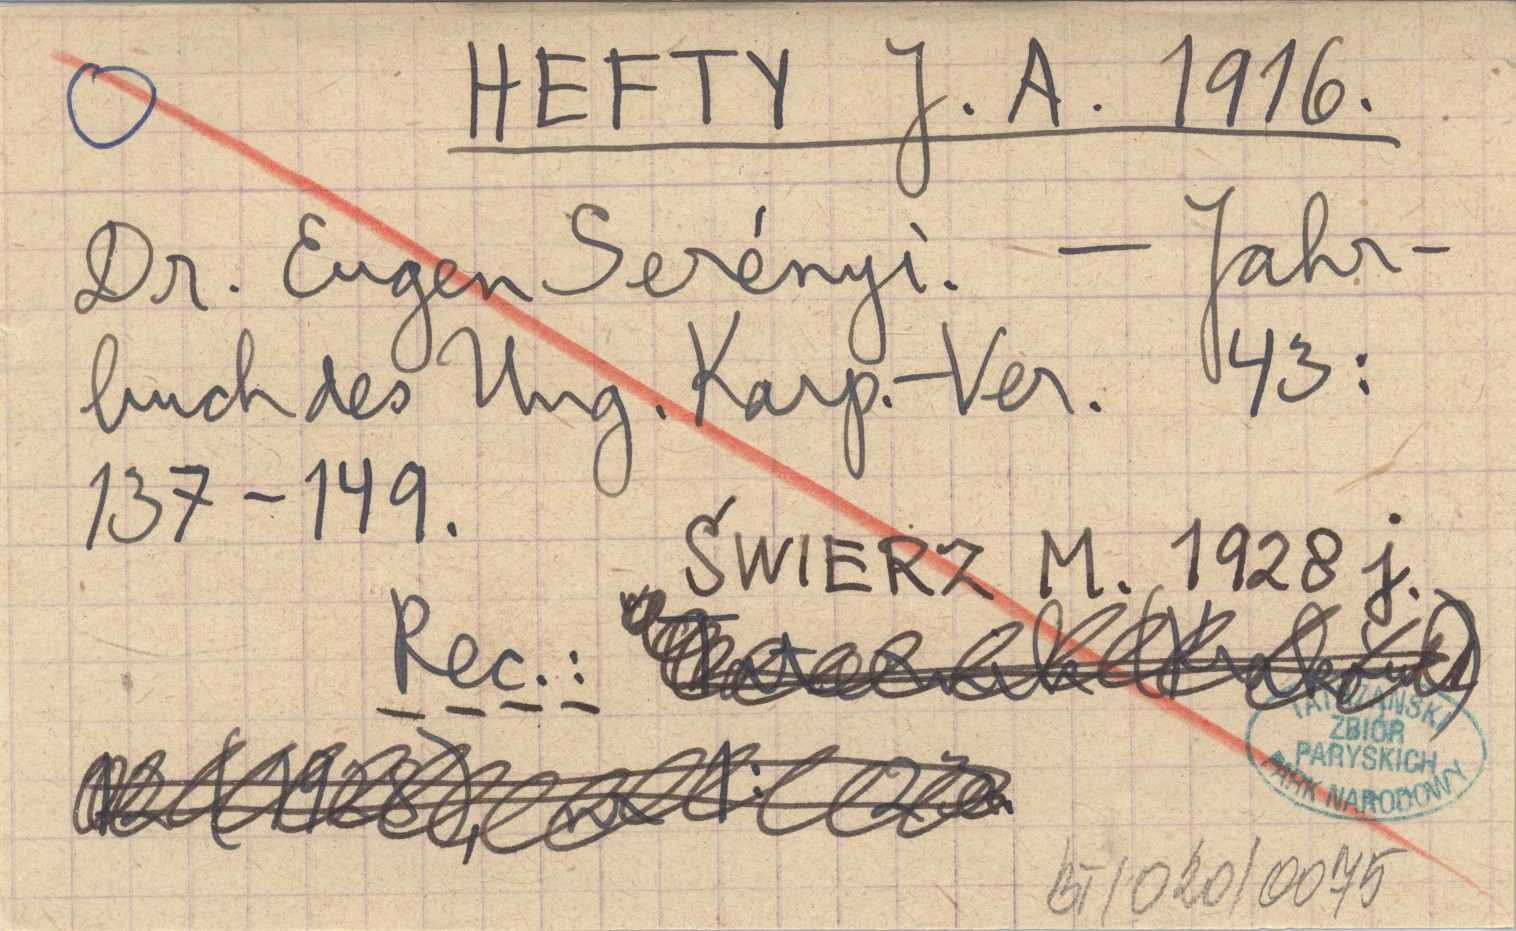 HEFTY J. A. 1916.
Dr. Eugen Serényi. — Jahr-
buch des Ung. Karp.-Ver. 43:
137-149.
ŚWIERZ M. 1928 j.
Rec.:
(1928), 1:
TATRZAŃSKI
ZBIÓR
PARYSKICH
PARK NARODOWY
BT/020/0075